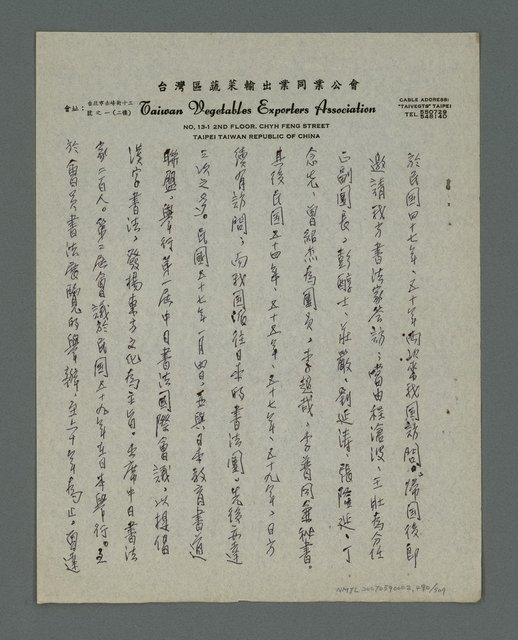 台灣區蔬菜輸出業同業公會
會址：台北市赤峰街十三號之一（二樓）
Taiwan Vegetables Exporters Association
CABLE ADDRESS:
"TAIVEGTS" TAIPEI
TEL. 550729
548140
NO, 13-1 2ND FLOOR, CHYH FENG STREET
TAIPEI TAIWAN REPUBLIC OF CHINA
於民國四十七年、五十年兩次來我國訪問。歸國後即
邀請我方書法家答訪，當由程滄波、王壯為分任
正副團長，彭醇士、莊嚴、劉延濤、張隆延、丁
念先、曾紹杰為團員，李超哉、李普同兼秘書。
其後民國五十四年、五十五年、五十七年、五十九年、日方
續有訪問，而我國派往日本的書法團，先後亦達
三次之多。民國五十七年一月四日，並與日本教育書道
聯盟，舉行第一屆中日書法國際會議，以提倡
漢字書法，發揚東方文化為主旨。出席中日書法
家二百人。第二屆會議於民國五十九年在日本舉行。至
於會員書法展覽的舉辦，至六十年為止，曾達
NMTL 20070590002, 490/509